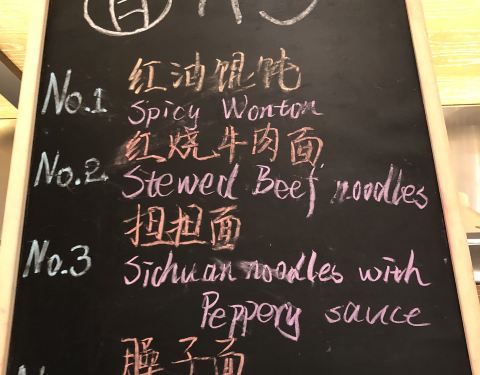 No.1 红油馄饨
Spicy Wonton
No.2 红烧牛肉面
Stewed Beef noodles
担担面
No.3 Sichuan noodles with
Peppery sauce
臊子面